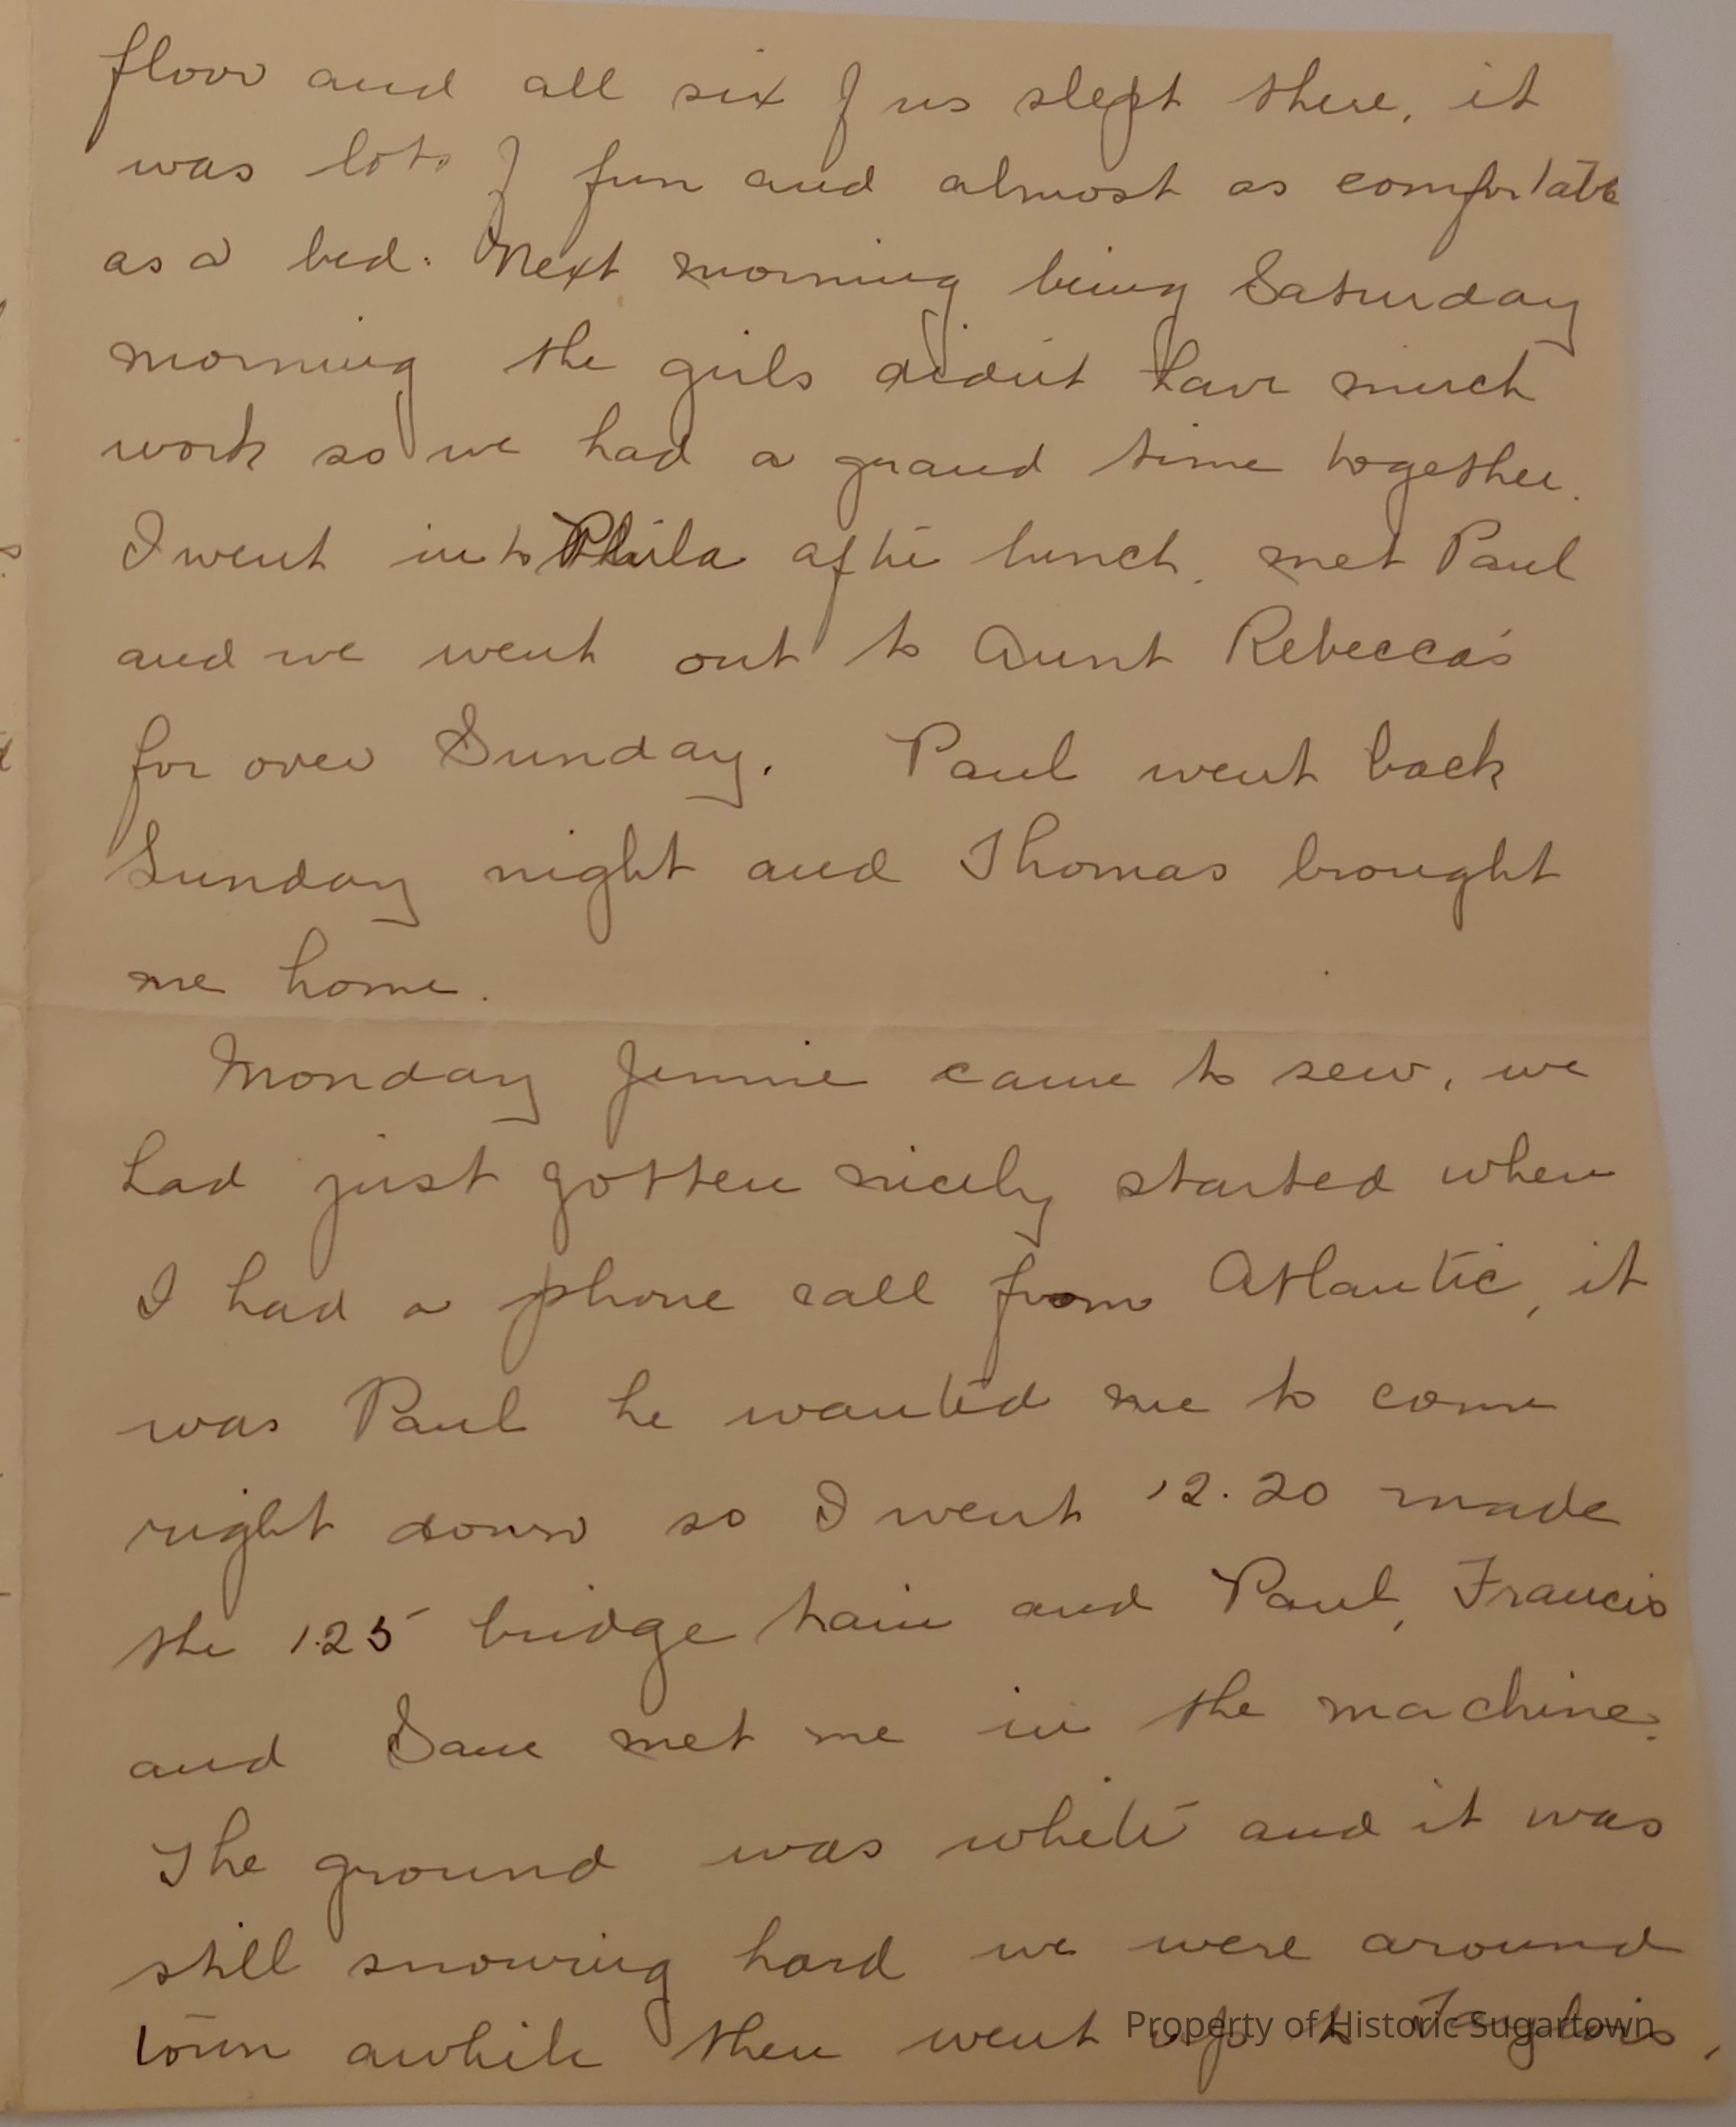 floor and all six of us slept there, it
was lots of fun and almost as comfortable
as a bed. Next morning being Saturday
morning the girls didn't have much
work so we had a grand time together.
I went into Phila after lunch, met Paul
and we went out to Aunt Rebecca's
for over Sunday. Paul went back
Sunday night and Thomas brought
me home.
Monday Jennie came to sew, we
had just gotten nicely started when
I had a phone call from Atlantic, it
was Paul he wanted me to come
right down so I went 12.20 made
the 1.25 bridge train and Paul, Francis
and Dave met me in the machine.
The ground was white and it was
still snowing hard we were around
town awhile then went up to
Property of Historic Sugartown